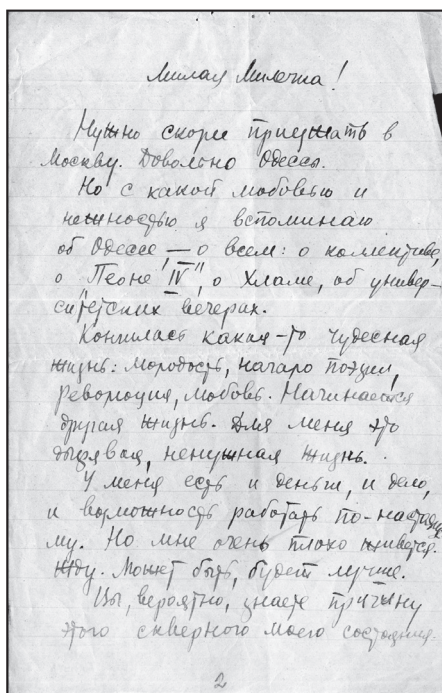 Милая Милочка!
Нужно скоре приезжать в
Москву. Довольно Одессы.
Но с какой любовью и
нежностью я вспоминаю
об Одессе, — о всем: о коллективе,
о "Пеоне IV", о Хламе, об универ-
ситетских вечерах.
Кончилась какая-то чудесная
жизнь: молодость, начало поэзии,
революция, любовь. Начинается
другая жизнь. Для меня это
дырявая, ненужная жизнь.
У меня есть и деньги, и дело,
и возможность работать по-настояще
му. Но мне очень плохо живется.
Жду. Может быть, будет лучше.
Вы, вероятно, знаете причину
этого скверного моего состояния.
2